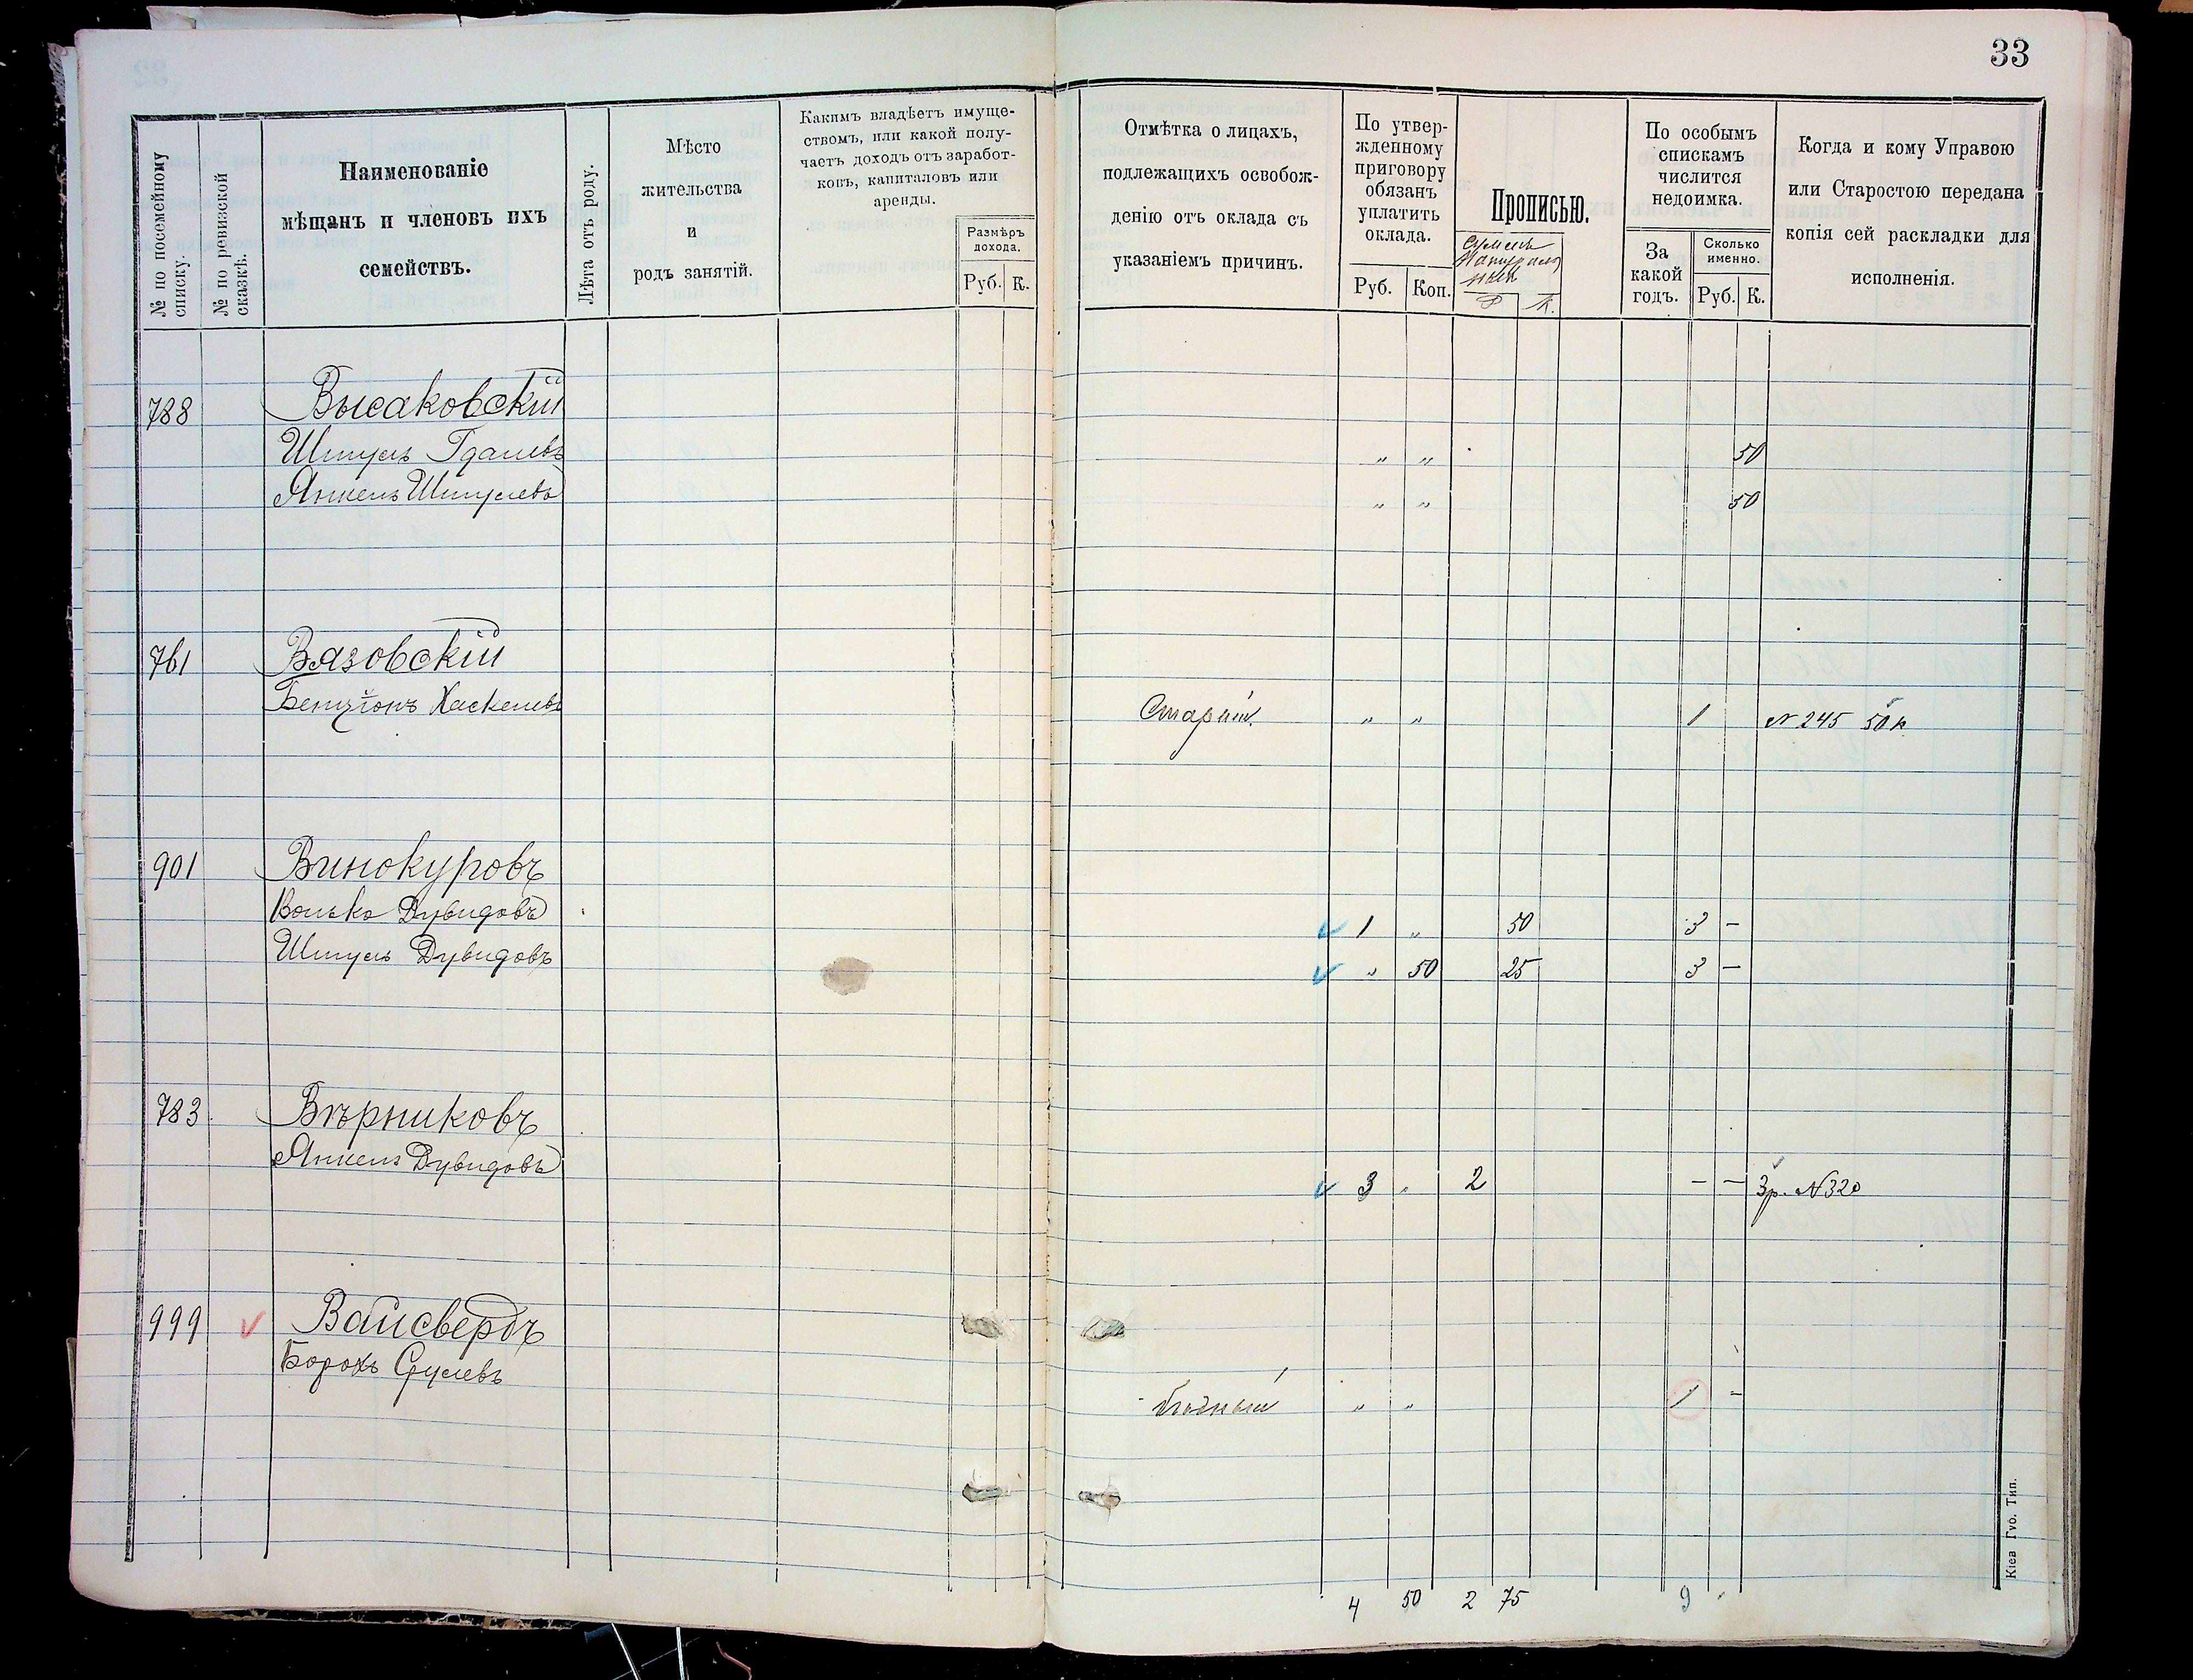 33
№ по посемейному
списку.
№ по ревизской
сказкѣ.
Наименованіе
мѣщанъ и членовъ ихъ
семействъ.
Лѣта отъ роду.
Мѣсто
жительства
и
родъ занятій.
Какимъ владѣетъ имуще-
ствомъ, или какой полу-
чаетъ доходъ отъ заработ-
ковъ, капиталовъ или
аренды.
Размѣръ
дохода.
Руб. К.
Отмѣтка о лицахъ,
подлежащихъ освобож-
денію отъ оклада съ
указаніемъ причинъ.
По утвер-
жденному
приговору
обязанъ
уплатить
оклада.
Руб. Коп.
Прописью.
Р К.
По особымъ
спискамъ
числится
недоимка.
За
какой
годъ.
Сколько
именно.
Руб. К.
Когда и кому Управою
или Старостою передана
копія сей раскладки для
исполненія.
788 Высаковскій
Шмуль Гдалевъ " " 50
Янкель Шмулевъ " " 50
761 Вязовскій
Бенціонъ Хаскелевъ Старый " " 1 N 245 50 к
901 Винокуровъ
Волько Дувидовъ 1 " 50 3 -
Шмуль Дувидовъ " 50 25 3 -
783 Вѣрниковъ
Янкель Дувидовъ 3 " 2 - - 3р. N 320
999 Вайсвердъ
Борохъ Срулевъ бѣдный " " 1 -
4 50 2 75 9
Кіев Губ. Тип.